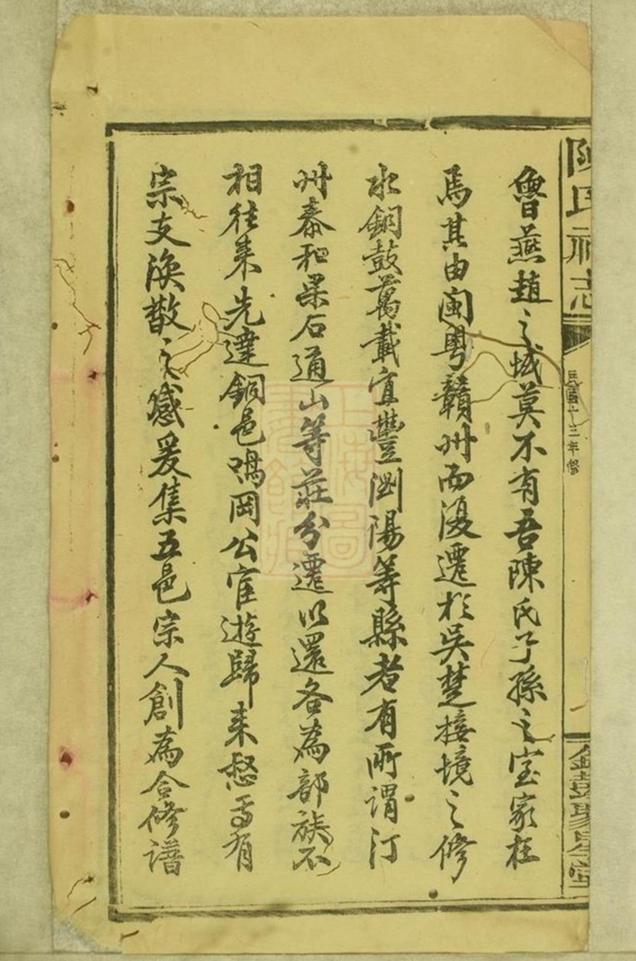 陳氏祠志
民國十三年修
魯燕趙之域莫不有吾陳氏子孫之室家在
焉其由閩粵贛州而復遷於吳楚接境之修
水銅鼓萬載宜豐瀏陽等縣者有所謂汀
州泰和梁石通山等莊分遷以還各為部族不
相往來先達銅邑鳴岡公宦遊歸來愁焉有
宗支渙散之感爰集五邑宗人創為合修譜
上海圖書館藏